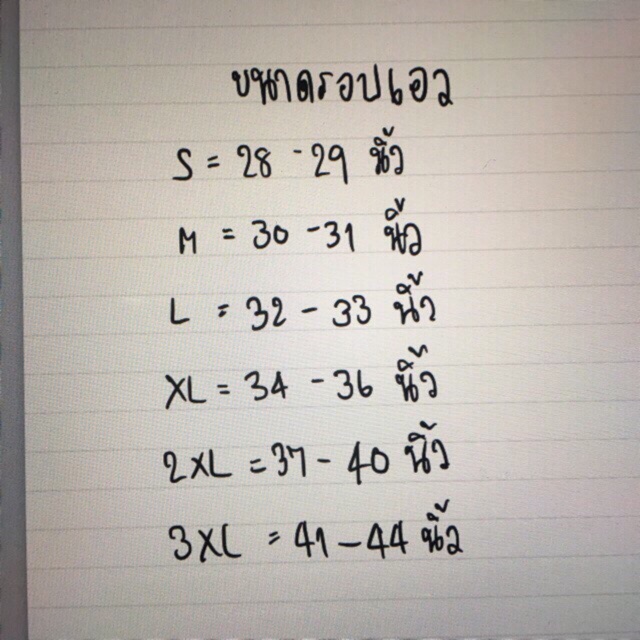 ขนาดรอบเอว
S = 28 - 29 นิ้ว
M = 30 - 31 นิ้ว
L = 32 - 33 นิ้ว
XL = 34 - 36 นิ้ว
2XL = 37 - 40 นิ้ว
3XL = 41 - 44 นิ้ว